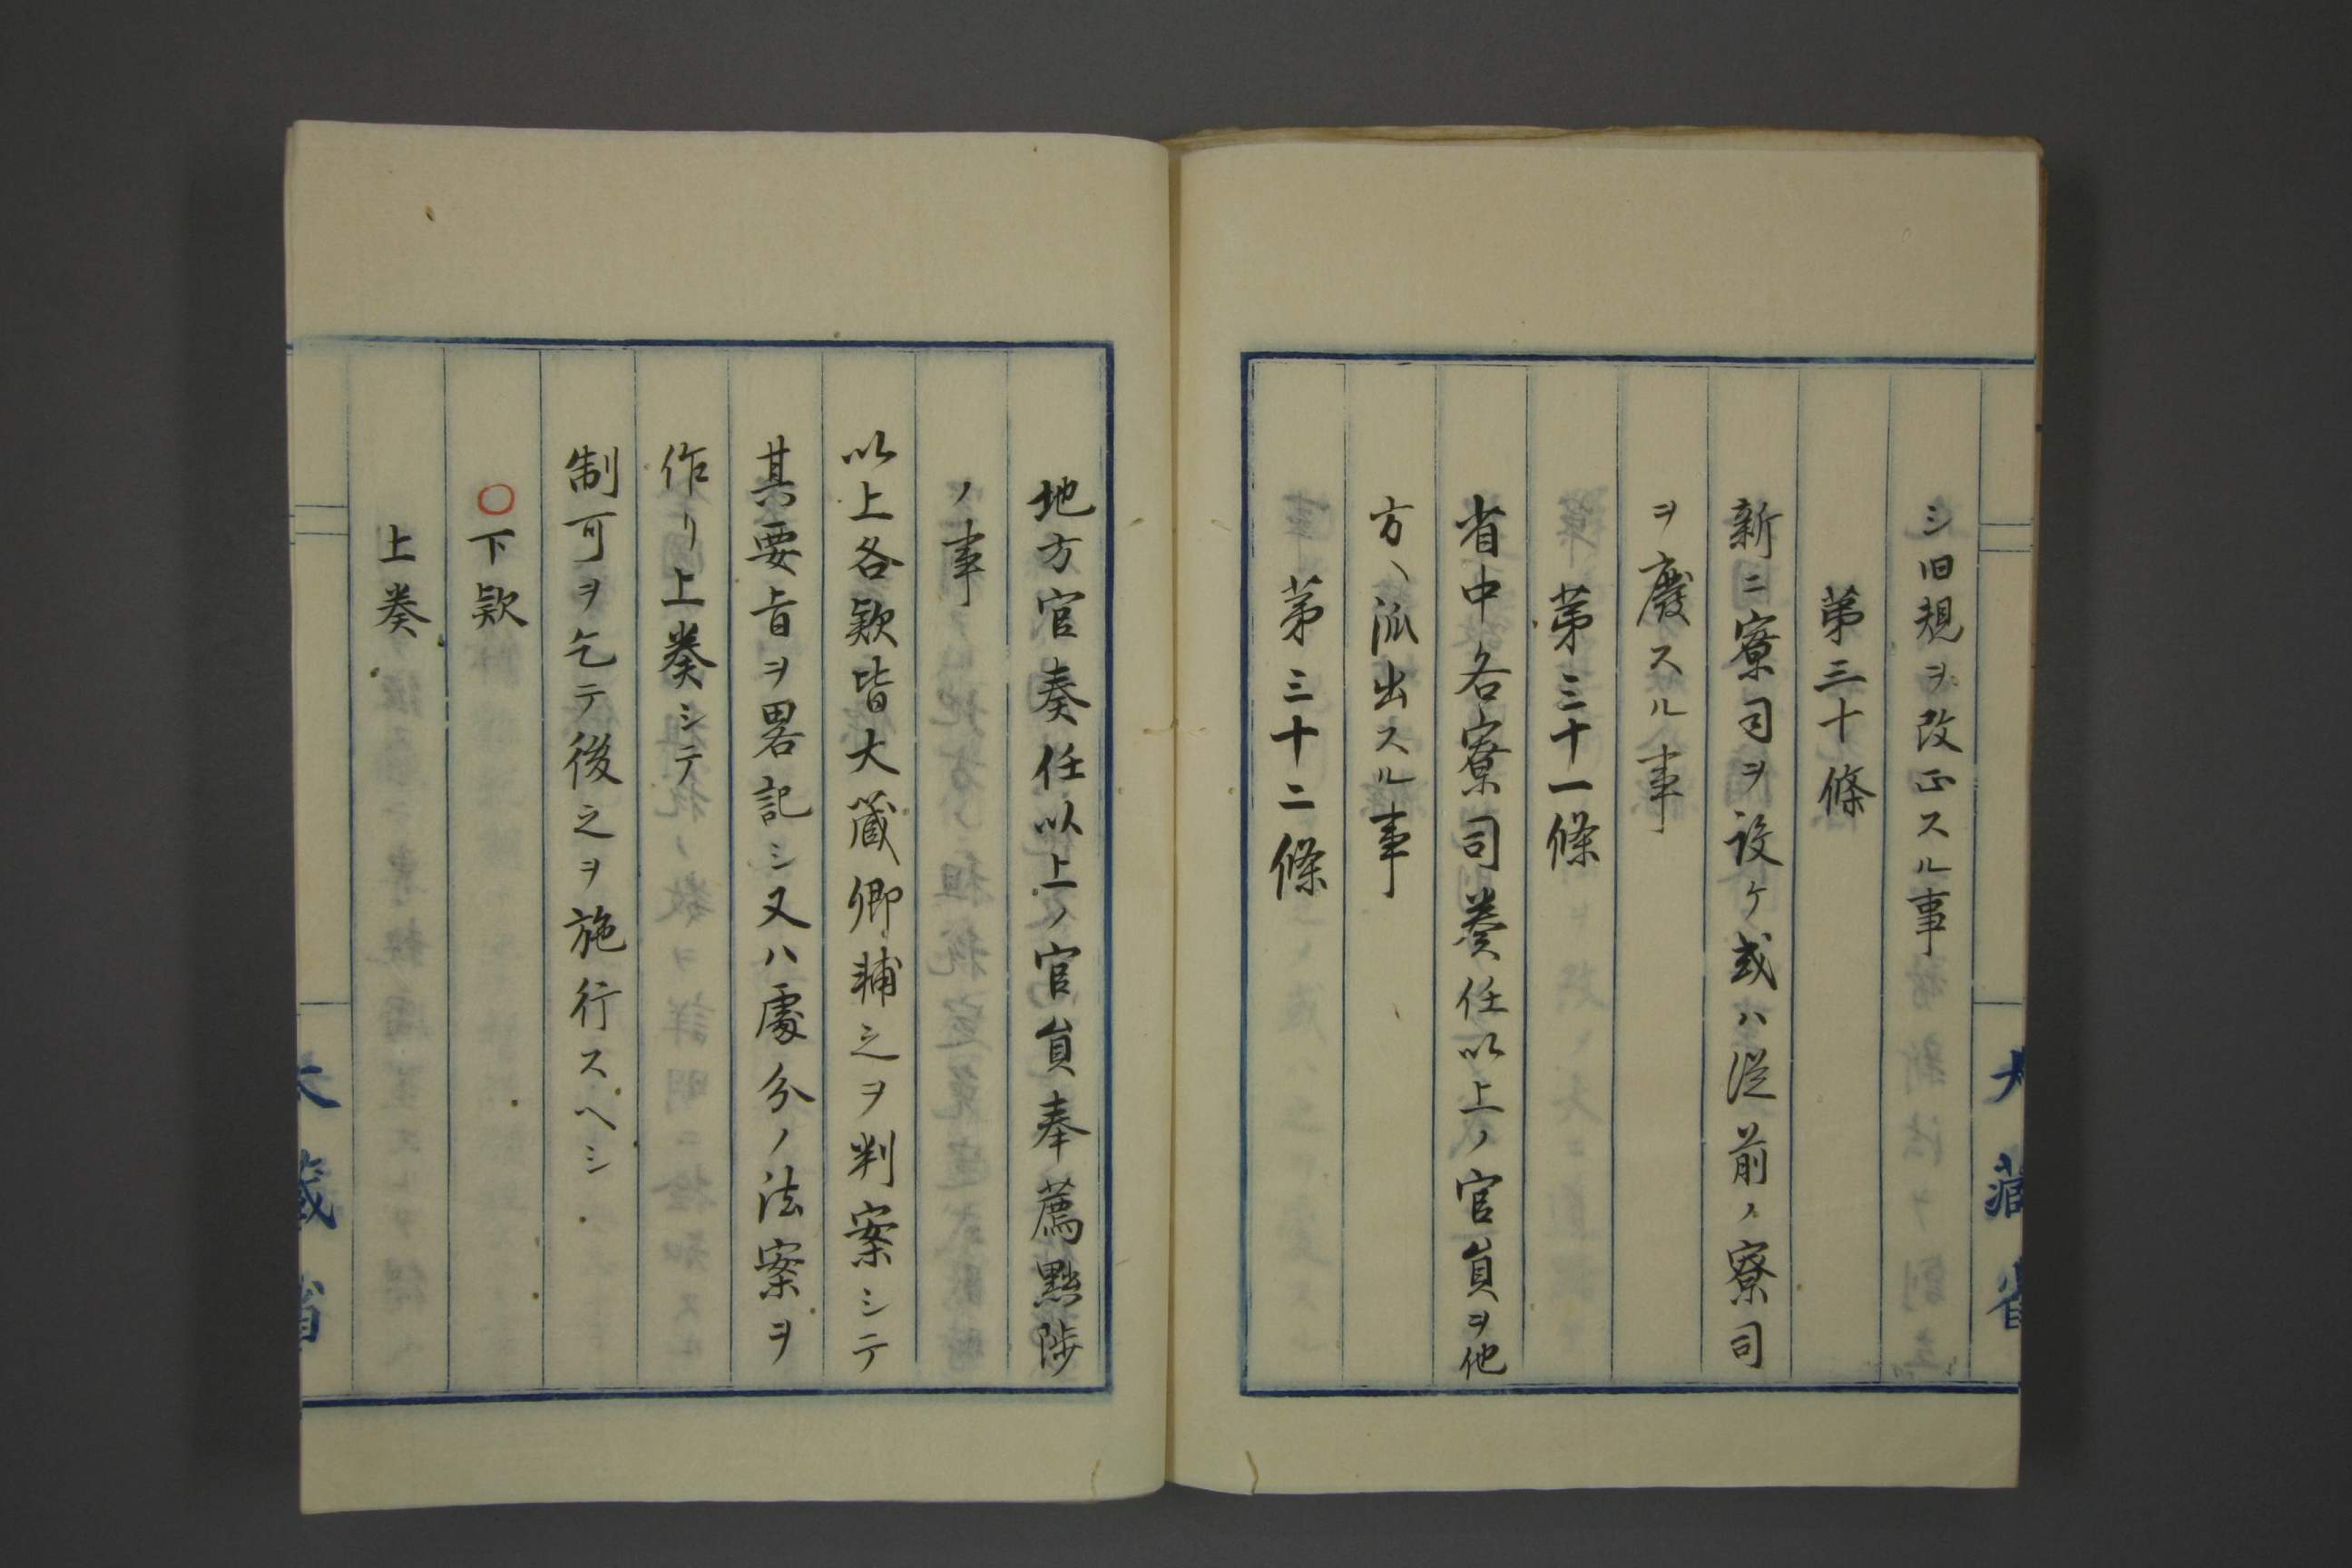 シ旧規ヲ改正スル事
第三十條
新ニ寮司ヲ設ケ或ハ従前ノ寮司
ヲ廢スル事
第三十一條
省中各寮司奏任以上ノ官員ヲ他
方ヘ派出スル事
第三十二條
地方官奏任以上ノ官員奉薦黜陟
ノ事
以上各欵皆大藏卿輔之ヲ判案シテ
其要旨ヲ畧記シ又ハ處分ノ法案ヲ
作リ上奏シテ
制可ヲ乞テ後之ヲ施行スヘシ
〇下欵
上奏
大藏省
大藏省